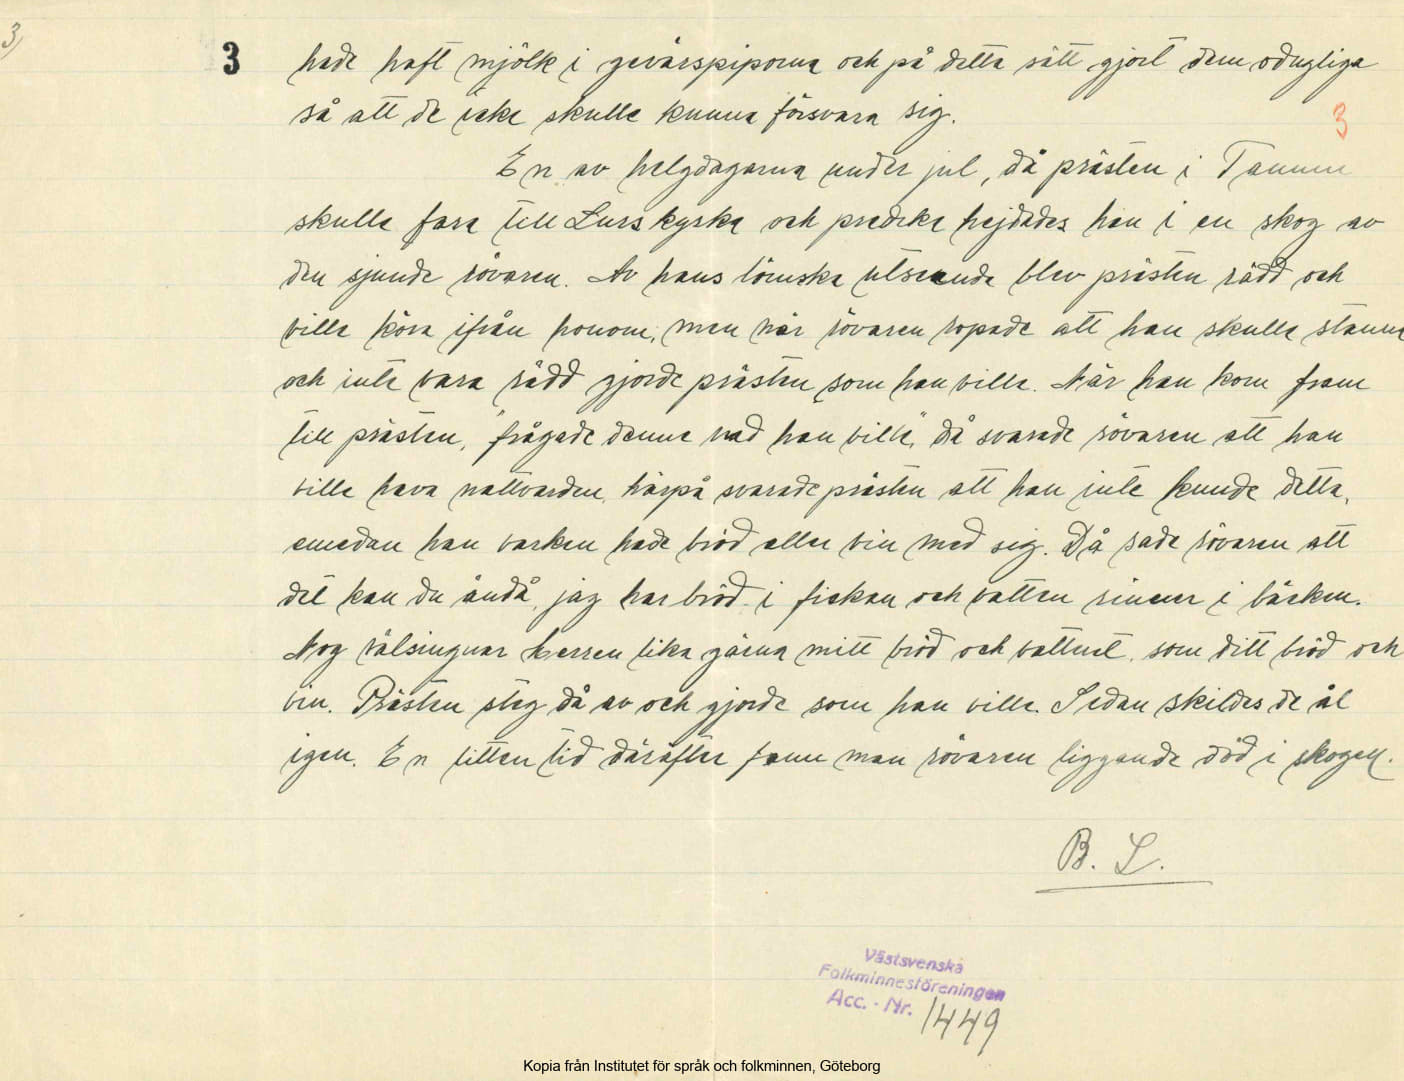 3
3
hade haft mjölk i gevärspiporna och på detta sätt gjort dem odugliga
så att de icke skulle kunna försvara sig.
3
En av helgdagarna under jul, då prästen i Tanum
skulle fara till Lurs kyrka och predika hejdades han i en skog av
den sjunde rövaren. Av hans lömska utseende blev prästen rädd och
ville köra ifrån honom, men när rövaren ropade att han skulle stanna
och inte vara rädd gjorde prästen som han ville. När han kom fram
till prästen, "frågade denne vad han ville", då svarade rövaren att han
ville hava nattvarden, härpå svarade prästen att han inte kunde detta,
emedan han varken hade bröd eller vin med sig. Då sade rövaren att
det kan du ändå, jag har bröd i fickan och vatten rinner i bäcken.
Nog välsingnar Herren lika gärna mitt bröd och vattnet, som ditt bröd och
vin. Prästen steg då av och gjorde som han ville. Sedan skildes de åt
igen. En litten tid däräfter fann man rövaren liggande död i skogen.
B. L.
Västsvenska
Folkminnesföreningen
Acc. - Nr. 1449
Kopia från Institutet för språk och folkminnen, Göteborg